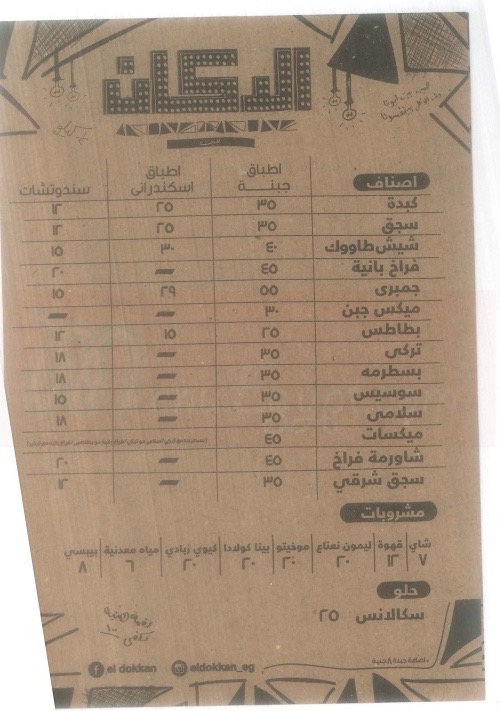 الدكان
اصناف | اطباق جبنة | اطباق اسكندرانى | سندوتشات
كبدة | ٣٥ | ٢٥ | ١٢
سجق | ٣٥ | ٢٥ | ١٢
شيش طاووك | ٤٠ | ٣٠ | ١٥
فراخ بانية | ٤٥ | — | ٢٠
جمبرى | ٥٥ | ٢٩ | ١٥
ميكس جبن | ٣٠ | — | —
بطاطس | ٢٥ | ١٥ | ١٢
تركى | ٣٥ | — | ١٨
بسطرمه | ٣٥ | — | ١٨
سوسيس | ٣٥ | — | ١٥
سلامى | ٣٥ | — | ١٨
ميكسات | ٤٥
شاورمة فراخ | ٤٥ | — | ٢٠
سجق شرقي | ٣٥ | — | ١٢
مشروبات
شاي | قهوة | ليمون نعناع | موخيتو | بينا كولادا | كيوي زبادي | مياه معدنية | بيبسي
٧ | ١٢ | ٢٠ | ٢٠ | ٢٠ | ٢٠ | ٦ | ٨
حلو
سكالانس ٢٥
اضافة جبنة ٨ جنية
el dokkan eldokkan_eg